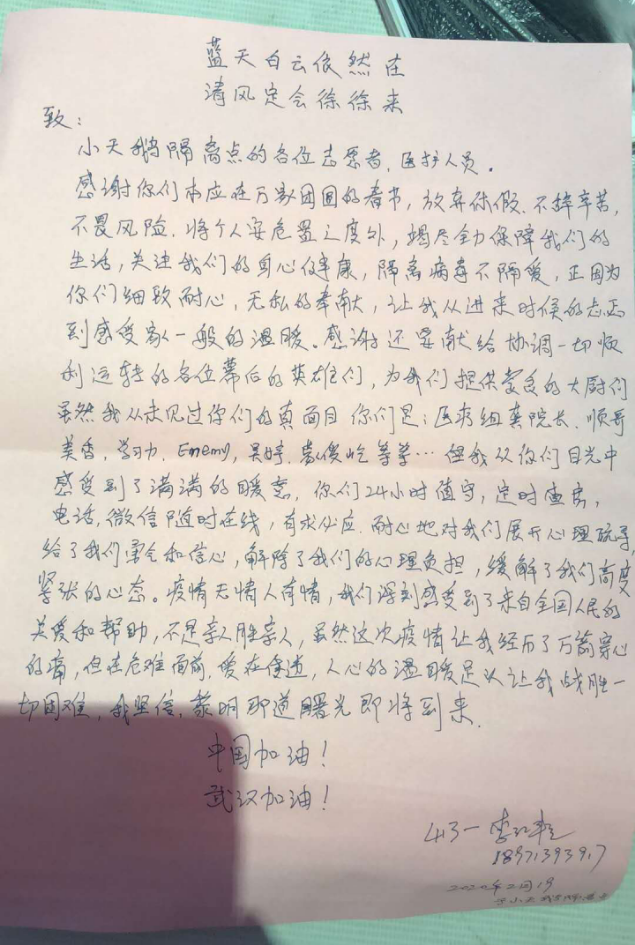 蓝天白云依然在
清风定会徐徐来
致：
小天鹅隔离点的各位志愿者，医护人员。
感谢你们本应在万家团圆的春节，放弃休假、不辞辛苦，
不畏风险，将个人安危置之度外，竭尽全力保障我们的
生活，关注我们的身心健康，隔离病毒不隔爱，正因为
你们细致耐心，无私的奉献，让我从进来时候的忐忑
到感受家一般的温暖。感谢还要献给协调一切顺
利运转的各位幕后的英雄们，为我们提供爱的大厨们
虽然我从未见过你们的真面目 你们是：医疗组龚院长、顺哥
美香，学习力，Enemy，吴婷，等等…但我从你们目光中
感受到了满满的暖意，你们24小时值守，定时查房，
电话，微信随时在线，有求必应、耐心地对我们展开心理疏导，
给了我们勇气和信心，解除了我们的心理负担，缓解了我们高度
紧张的心态。疫情无情人有情，我们深刻感受到了来自全国人民的
关爱和帮助，不是亲人胜亲人，虽然这次疫情让我经历了万箭穿心
的痛，但在危难面前，爱在传递，人心的温暖足以让我战胜一
切困难，我坚信，黎明那道曙光即将到来。
中国加油！
武汉加油！
413一李
2020年2月19
于小天鹅